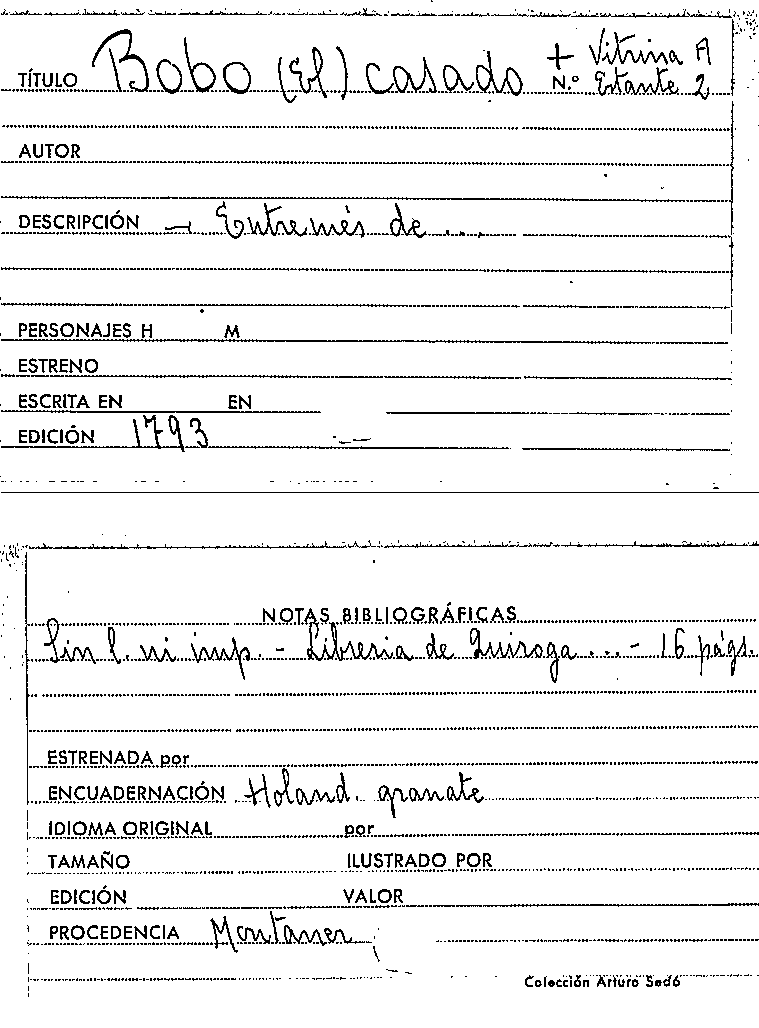 TÍTULO Bobo (El) casado + Vitrina A
N.º Estante 2
AUTOR
DESCRIPCIÓN - Entremés de ...
PERSONAJES H M
ESTRENO
ESCRITA EN EN
EDICIÓN 1793
NOTAS BIBLIOGRÁFICAS
Sin l. ni imp. - Librería de Quiroga ... - 16 págs.
ESTRENADA por
ENCUADERNACIÓN Holand. granate
IDIOMA ORIGINAL por
TAMAÑO ILUSTRADO POR
EDICIÓN VALOR
PROCEDENCIA Montaner
Colección Arturo Sedó